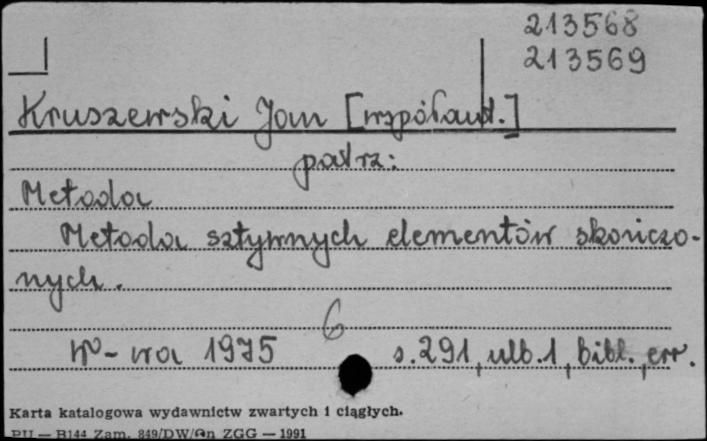 213568
213569
Kruszewski Jan [współaut.]
patrz:
Metoda
Metoda sztywnych elementów skończo-
nych.
6
W-wa 1975 s.291, ulb.1, bibl., err.
Karta katalogowa wydawnictw zwartych i ciągłych.
PU — B144 Zam. 849/DW/ ZGG — 1991